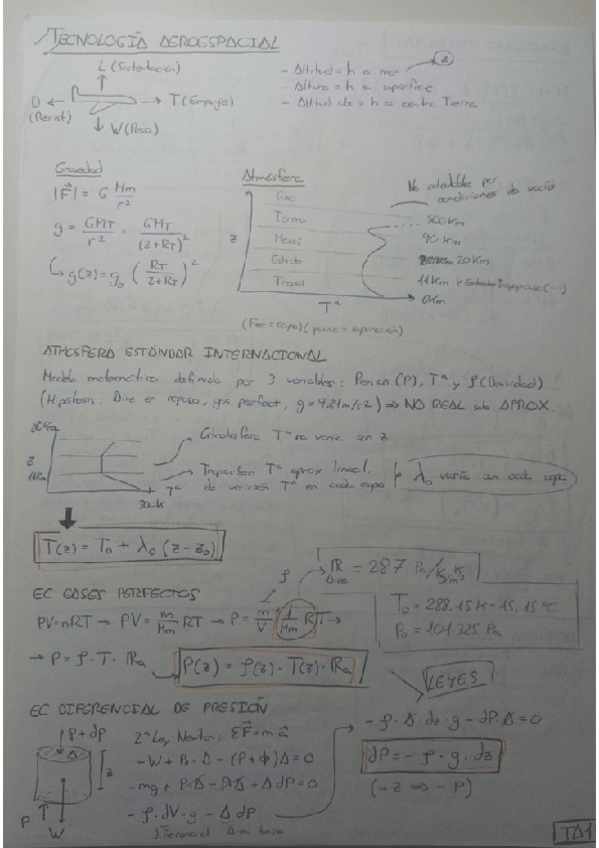 TECNOLOGÍA AEROESPACIAL
L (Sustentación)
D (Resist)
T (Empuje)
W (Peso)
- Altitud = h a mar z
- Altura = h a superficie
- Altitud abs = h a centro Tierra
Gravedad
|F| = G Mm / r²
g = GMT / r² = GMT / (z+RT)²
↳ g(z) = g₀ (RT / z+RT)²
Atmósfera
Exo
Termo
Mesos
Estrato
Tropos
z
Tª
No estudiable por condiciones de vacío
500 Km
90 Km
20 Km
11 Km
0 Km
(Fera = capa) (pausa = separación)
ATMOSFERA ESTÁNDAR INTERNACIONAL
Modelo matemático definido por 3 variables: Presión (P), Tª y ρ (Densidad)
(Hipótesis: Aire en reposo, gas perfect, g = 9,81 m/s²) ⇒ NO REAL solo APROX.
z
11Km
Tª
→ Estratosfera Tª no varía con z
→ Troposfera Tª aprox lineal.
λ₀ varía en cada capa
T(z) = T₀ + λ₀ (z - z₀)
EC GASES PERFECTOS
PV = nRT → PV = m/Mm RT → P = m/V (1/Mm) RT →
ρ
R Aire = 287
T₀ = 288.15 K = 15.15 ºC
P₀ = 101 325 Pa
→ P = ρ · T · Ra
P(z) = ρ(z) · T(z) · Ra
LEYES
EC DIFERENCIAL DE PRESIÓN
P + dP
A
z
P
W
2ª Ley Newton: ΣF = m a
- W + P · A - (P + dP) A = 0
- mg + P·A - P·A + A dP = 0
- ρ · dV · g - A dP
diferencial Área base
- ρ · A · dz · g - dP · A = 0
dP = - ρ · g · dz
(+z ⇒ - P)
TA1